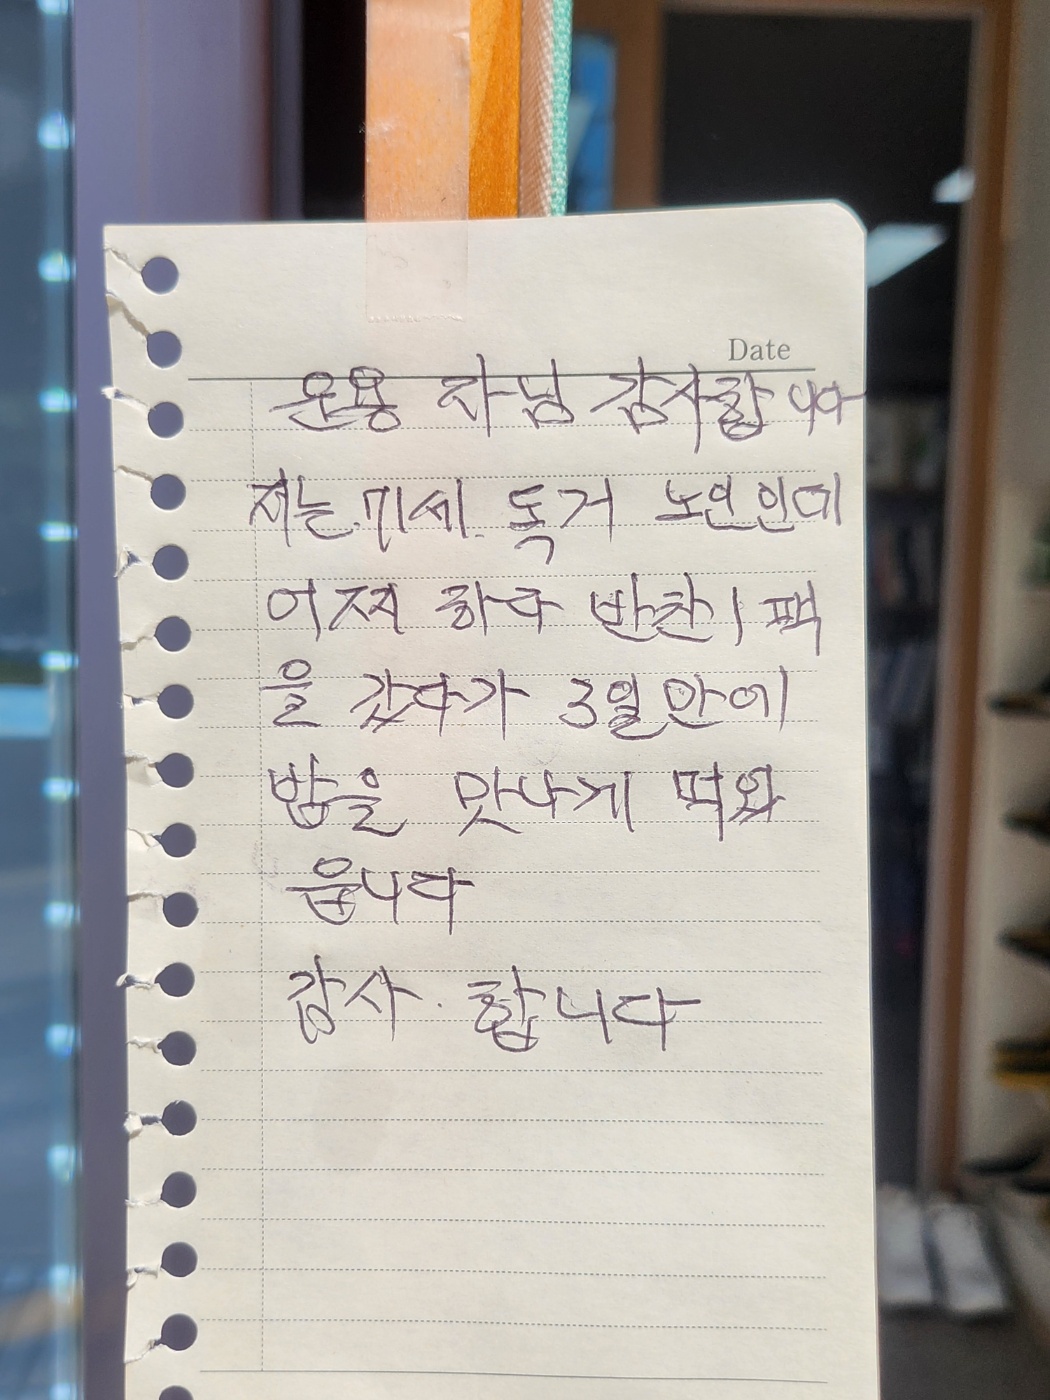 Date
운용 자님 감사합니다
저는 71세. 독거 노인인데
어찌 하다 반찬 1 팩
을 갔다가 3일 안에
밥을 맛나게 먹았
습니다
감사. 합니다